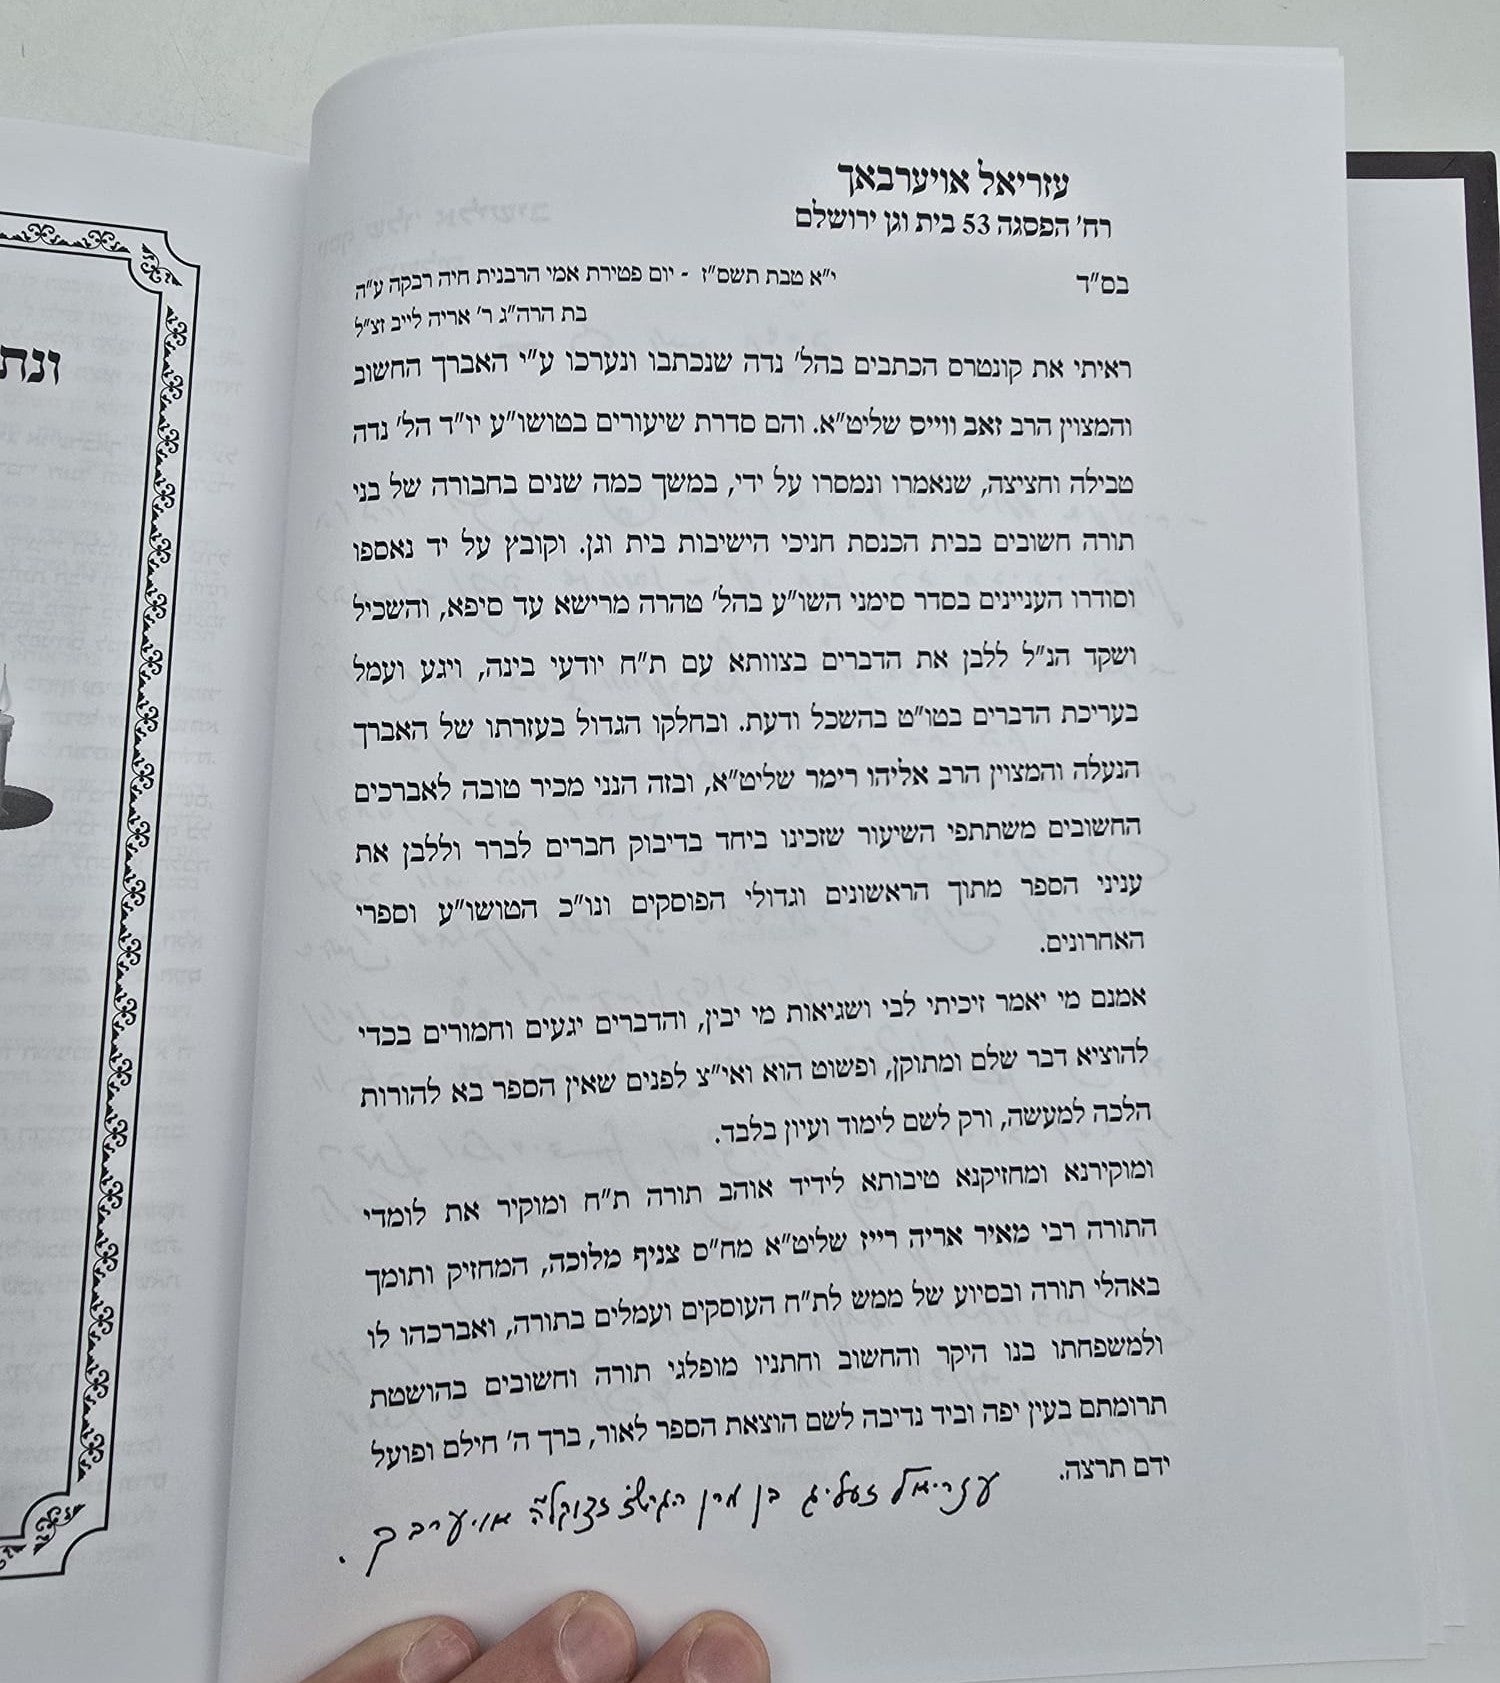 עזריאל אויערבאך
רח' הפסגה 53 בית וגן ירושלם
בס"ד
י"א טבת תשס"ז - יום פטירת אמי הרבנית חיה רבקה ע"ה
בת הרה"ג ר' אריה לייב זצ"ל
ראיתי את קונטרס הכתבים בהל' נדה שנכתבו ונערכו ע"י האברך החשוב
והמצוין הרב זאב ווייס שליט"א. והם סדרת שיעורים בטושו"ע יו"ד הל' נדה
טבילה וחציצה, שנאמרו ונמסרו על ידי, במשך כמה שנים בחבורה של בני
תורה חשובים בבית הכנסת חניכי הישיבות בית וגן. וקובץ על יד נאספו
וסודרו העניינים בסדר סימני השו"ע בהל' טהרה מרישא עד סיפא, והשכיל
ושקד הנ"ל ללבן את הדברים בצוותא עם ת"ח יודעי בינה, ויגע ועמל
בעריכת הדברים בטו"ט בהשכל ודעת. ובחלקו הגדול בעזרתו של האברך
הנעלה והמצוין הרב אליהו רימר שליט"א, ובזה הנני מכיר טובה לאברכים
החשובים משתתפי השיעור שזכינו ביחד בדיבוק חברים לברר וללבן את
עניני הספר מתוך הראשונים וגדולי הפוסקים ונו"כ הטושו"ע וספרי
האחרונים.
אמנם מי יאמר זיכיתי לבי ושגיאות מי יבין, והדברים יגעים וחמורים בכדי
להוציא דבר שלם ומתוקן, ופשוט הוא ואי"צ לפנים שאין הספר בא להורות
הלכה למעשה, ורק לשם לימוד ועיון בלבד.
ומוקירנא ומחזיקנא טיבותא לידיד אוהב תורה ת"ח ומוקיר את לומדי
התורה רבי מאיר אריה רייז שליט"א מח"ם צניף מלוכה, המחזיק ותומך
באהלי תורה ובסיוע של ממש לת"ח העוסקים ועמלים בתורה, ואברכהו לו
ולמשפחתו בנו היקר והחשוב וחתניו מופלגי תורה וחשובים בהושטת
תרומתם בעין יפה וביד נדיבה לשם הוצאת הספר לאור, ברך ה' חילם ופועל
ידם תרצה.
עזריאל זעליג בן מרן הגרש"ז זצוקלה"ה אויערבך.
ונת